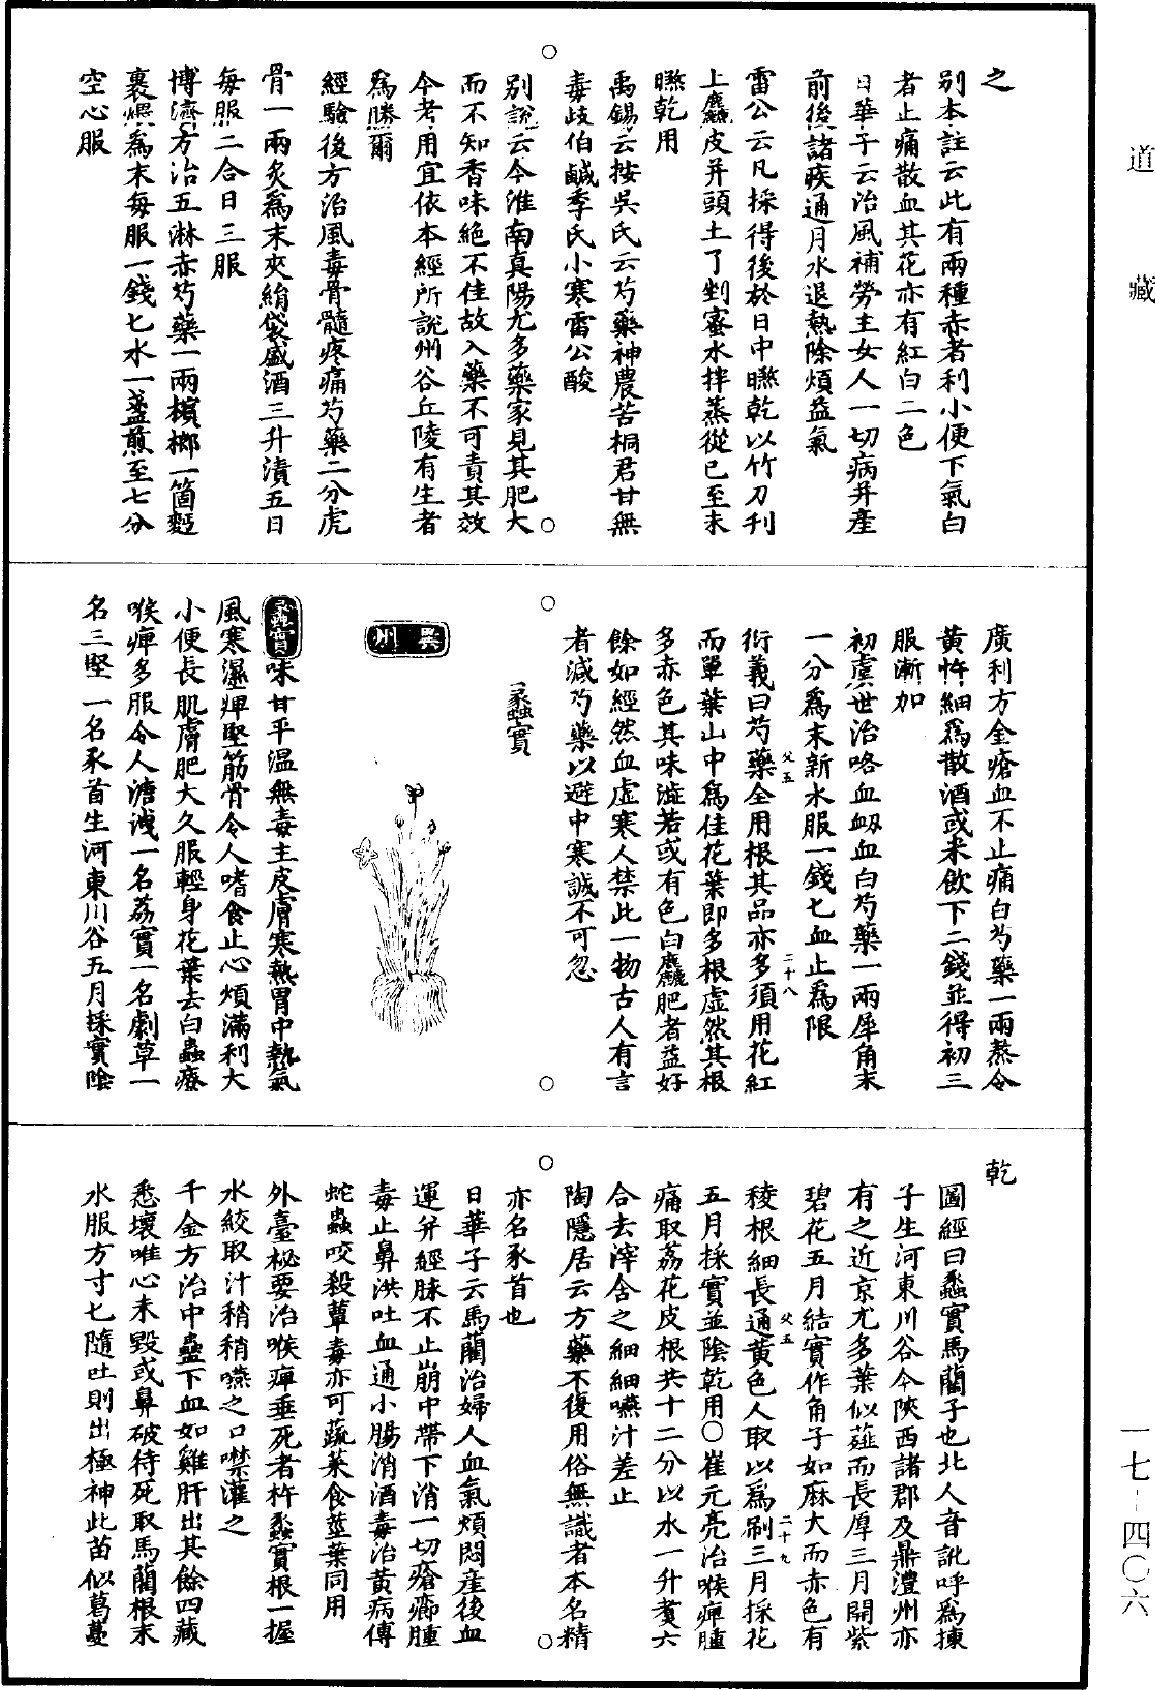 道藏
之
別本註云此有兩種赤者利小便下氣白
者止痛散血其花亦有紅白二色
日華子云治風補勞主女人一切病并產
前後諸疾通月水退熱除煩益氣
雷公云凡採得後於日中曬乾以竹刀刮
上麤皮并頭土了剉蜜水拌蒸從巳至未
曬乾用
禹錫云按吳氏云芍藥神農苦桐君甘無
毒歧伯鹹季氏小寒雷公酸
別說云今淮南真陽尤多藥家見其肥大
而不知香味絶不佳故入藥不可責其效
今考用宜依本經所說州谷丘陵有生者
爲勝爾
經驗後方治風毒骨髓疼痛芍藥二分虎
骨一兩炙爲末夾絹袋盛酒三升漬五日
每服二合日三服
博濟方治五淋赤芍藥一兩檳榔一箇麪
裹煨爲末每服一錢七水一盞煎至七分
空心服
廣利方金瘡血不止痛白芍藥一兩熬令
黃忤細爲散酒或米飲下二錢並得初三
服漸加
初虞世治咯血衂血白芍藥一兩犀角末
一分爲末新水服一錢七血止爲限
衍義曰芍藥全用根其品亦多須用花紅
而單葉山中爲佳花葉即多根虛然其根
多赤色其味澁若或有色白麤肥者益好
餘如經然血虛寒人禁此一物古人有言
者減芍藥以避中寒誠不可忽
父五
二十八
蠡實
冀州
蠡實味甘平溫無毒主皮膚寒熱胃中熱氣
風寒濕痺堅筋骨令人嗜食止心煩滿利大
小便長肌膚肥大久服輕身花葉去白蟲療
喉痺多服令人溏洩一名荔實一名劇草一
名三堅一名豕首生河東川谷五月採實陰
乾
圖經曰蠡實馬藺子也北人音訛呼爲揀
子生河東川谷今陝西諸郡及鼎澧州亦
有之近京尤多葉似薤而長厚三月開紫
碧花五月結實作角子如麻大而赤色有
稜根細長通黃色人取以爲刷三月採花
五月採實並陰乾用○崔元亮治喉痺腫
痛取荔花皮根共十二分以水一升煑六
合去滓含之細細嚥汁差止
陶隱居云方藥不復用俗無識者本名精
亦名豕首也
父五
二十九
日華子云馬藺治婦人血氣煩悶產後血
運并經脉不止崩中帶下消一切瘡癤腫
毒止鼻洪吐血通小腸消酒毒治黃病傳
蛇蟲咬殺蕈毒亦可蔬菜食莖葉同用
外臺秘要治喉痺垂死者杵蠡實根一握
水絞取汁稍稍嚥之口噤灌之
千金方治中蠱下血如雞肝出其餘四藏
悉壞唯心未毀或鼻破待死取馬藺根末
水服方寸七隨吐則出極神此苗似葛蔓
一七-四〇六